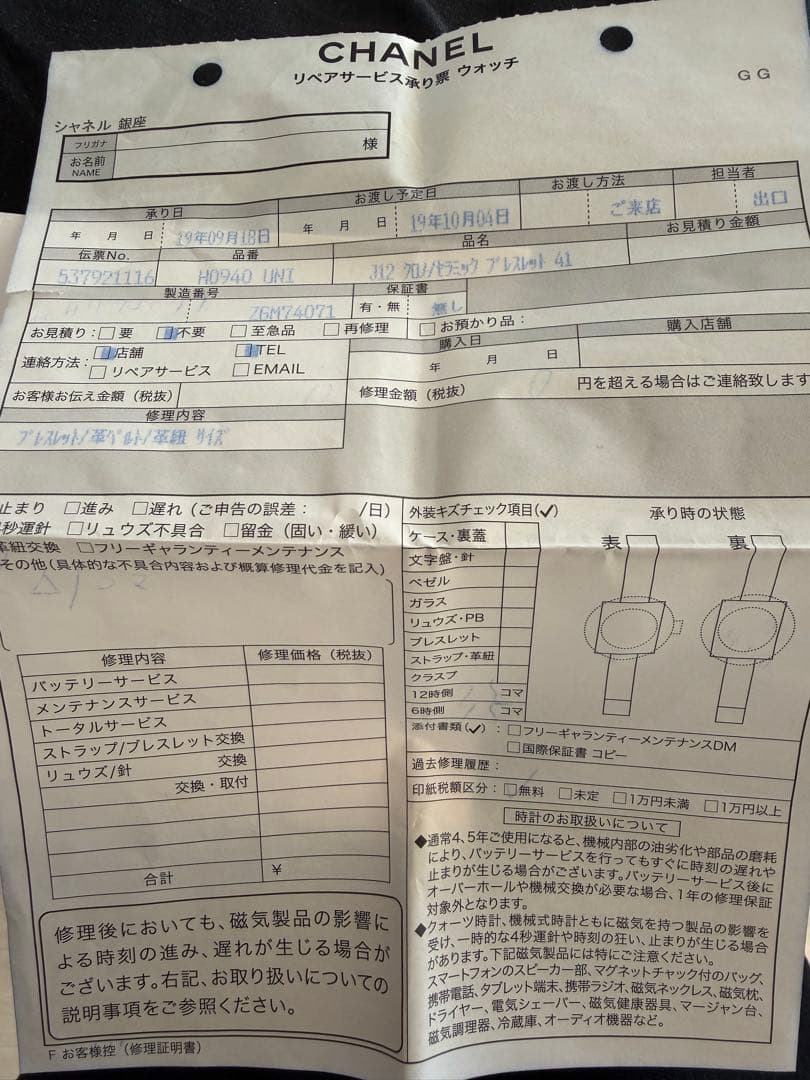 CHANEL
リペアサービス承り票 ウォッチ
G G
シャネル 銀座
フリガナ
お名前 様
NAME
承り日 お渡し予定日 お渡し方法 担当者
年 月 日 19年09月18日 年 月 日 19年10月04日 ご来店 出口
伝票No. 品番 品名 お見積り金額
537921116 H0940 UNI J12 クロノ/セラミック ブレスレット 41
製造番号 保証書
ZGM74071 有・無 無し
お見積り: 要 不要 至急品 再修理 お預かり品:
連絡方法: 店舗 TEL 購入日 購入店舗
リペアサービス EMAIL 年 月 日
お客様お伝え金額(税抜) 修理金額(税抜) 円を超える場合はご連絡致します
修理内容
ブレスレット/革ベルト/革紐 サイズ
止まり □進み □遅れ(ご申告の誤差: /日)
秒運針 □リュウズ不具合 □留金(固い・緩い)
革紐交換 □フリーギャランティーメンテナンス
その他(具体的な不具合内容および概算修理代金を記入)
修理内容 修理価格(税抜)
バッテリーサービス
メンテナンスサービス
トータルサービス
ストラップ/ブレスレット交換
リュウズ/針 交換
交換・取付
合計 ¥
修理後においても、磁気製品の影響に
よる時刻の進み、遅れが生じる場合が
ございます。右記、お取り扱いについての
説明事項をご参照ください。
F お客様控(修理証明書)
外装キズチェック項目(✓) 承り時の状態
ケース・裏蓋 表 裏
文字盤・針
ベゼル
ガラス
リュウズ・PB
ブレスレット
ストラップ・革紐
クラスプ
12時側 コマ
6時側 コマ
添付書類(✓): □フリーギャランティーメンテナンスDM
□国際保証書 コピー
過去修理履歴:
印紙税額区分: □無料 □未定 □1万円未満 □1万円以上
時計のお取扱いについて
◆通常4、5年ご使用になると、機械内部の油劣化や部品の磨耗
により、バッテリーサービスを行ってもすぐに時刻の遅れや
止まりが生じる場合がございます。バッテリーサービス後に
オーバーホールや機械交換が必要な場合、1年の修理保証
対象外となります。
◆クォーツ時計、機械式時計ともに磁気を持つ製品の影響を
受け、一時的な4秒運針や時刻の狂い、止まりが生じる場合
があります。下記磁気製品には特にご注意ください。
スマートフォンのスピーカー部、マグネットチャック付のバッグ、
携帯電話、タブレット端末、携帯ラジオ、磁気ネックレス、磁気枕、
ドライヤー、電気シェーバー、磁気健康器具、マージャン台、
磁気調理器、冷蔵庫、オーディオ機器など。